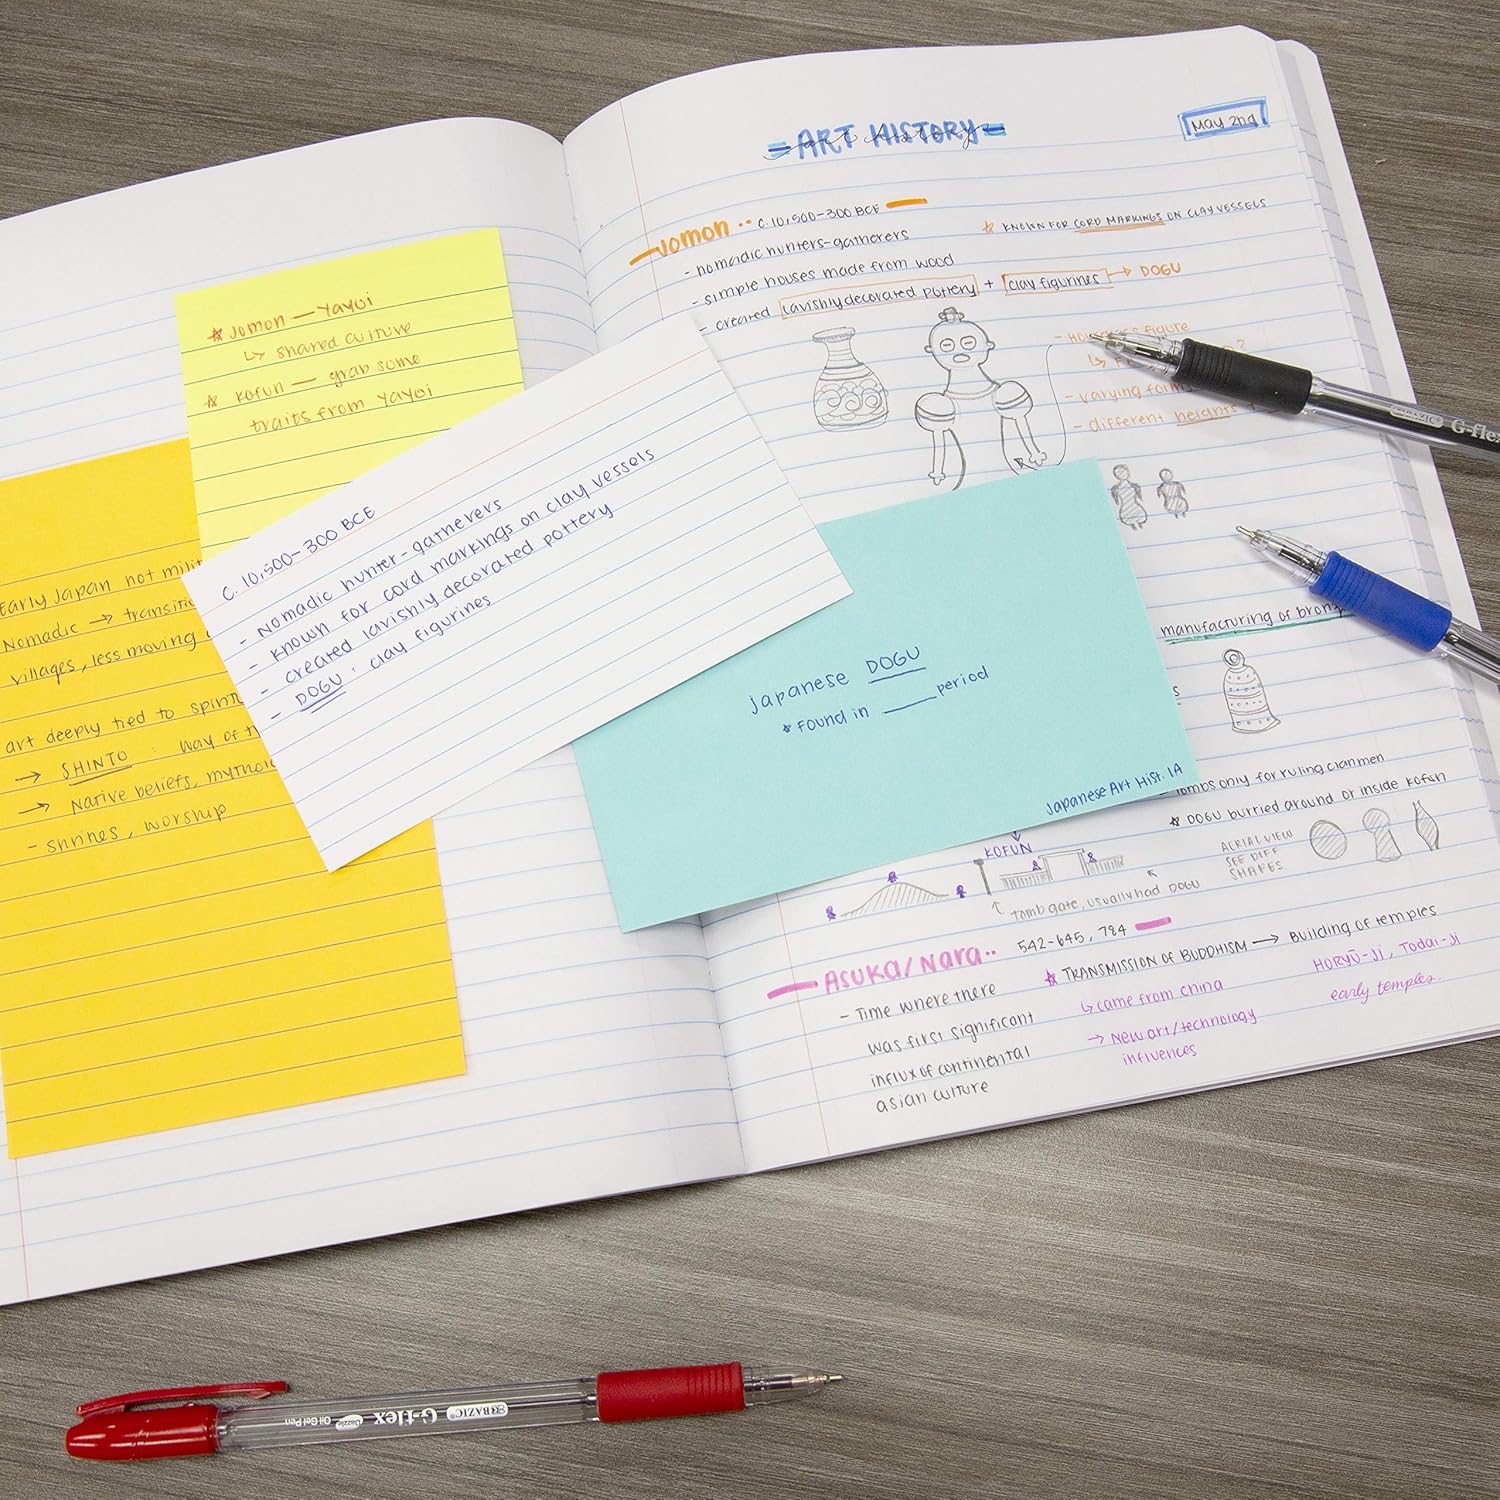 ★ Jomon — Yayoi
↳ shared culture
★ Kofun — grab some
traits from Yayoi
Early Japan not
Nomadic →
villages, less moving
art deeply tied to
→ SHINTO : way of
→ Native beliefs,
- shrines, worship
C. 10,500-300 BCE
- Nomadic hunter-gatherers
- known for cord markings on clay vessels
- created lavishly decorated pottery
- DOGU : clay figurines
Japanese DOGU
* Found in ____ period
Japanese Art Hist. 1A
= ART HISTORY =
art history
May 2nd
Jomon •• C. 10,500-300 BCE
- nomadic hunters-gatherers
★ KNOWN FOR CORD MARKINGS ON CLAY VESSELS
- simple houses made from wood
- created lavishly decorated pottery + clay figurines → DOGU
figure
- varying
- different heights
manufacturing of
tombs only for ruling clanmen
★ DOGU burried around or inside Kofun
AERIAL VIEW
SEE DIFF
SHAPES
KOFUN
tomb gate, usually had DOGU
Asuka/Nara •• 542-645, 784
- Time where there
was first significant
influx of continental
asian culture
★ TRANSMISSION OF BUDDHISM → Building of temples
↳ came from china
→ New art/technology
influences
HORYŪ-Ji, Todai-Ji
early temples
BAZIC G-flex
BAZIC G-flex Dazzle Oil Gel Pen